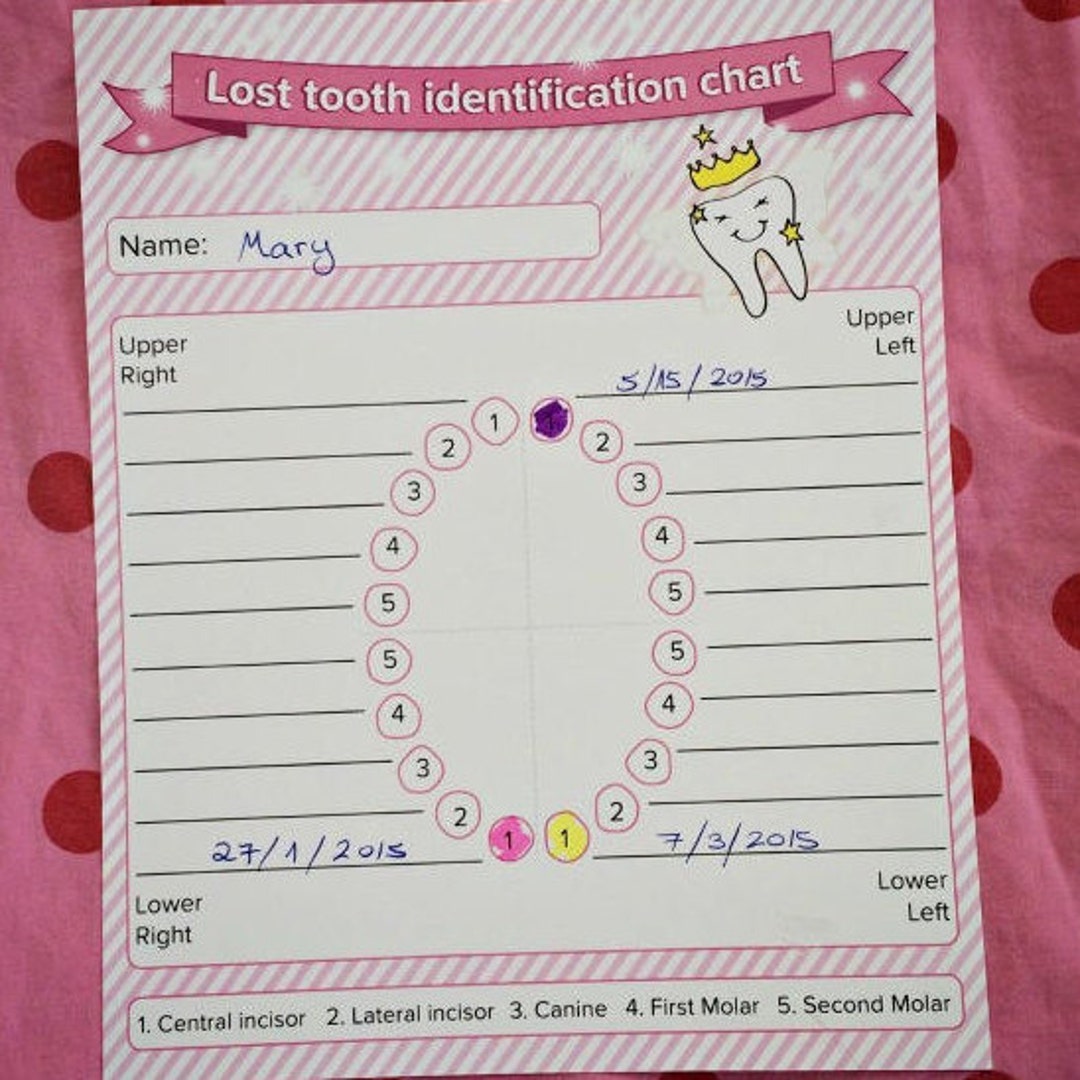 Lost tooth identification chart
Name: Mary
Upper Right
Upper Left
5/15/2015
1 1
2 2
3 3
4 4
5 5
5 5
4 4
3 3
2 2
27/1/2015 1 1 7/3/2015
Lower Right
Lower Left
1. Central incisor 2. Lateral incisor 3. Canine 4. First Molar 5. Second Molar